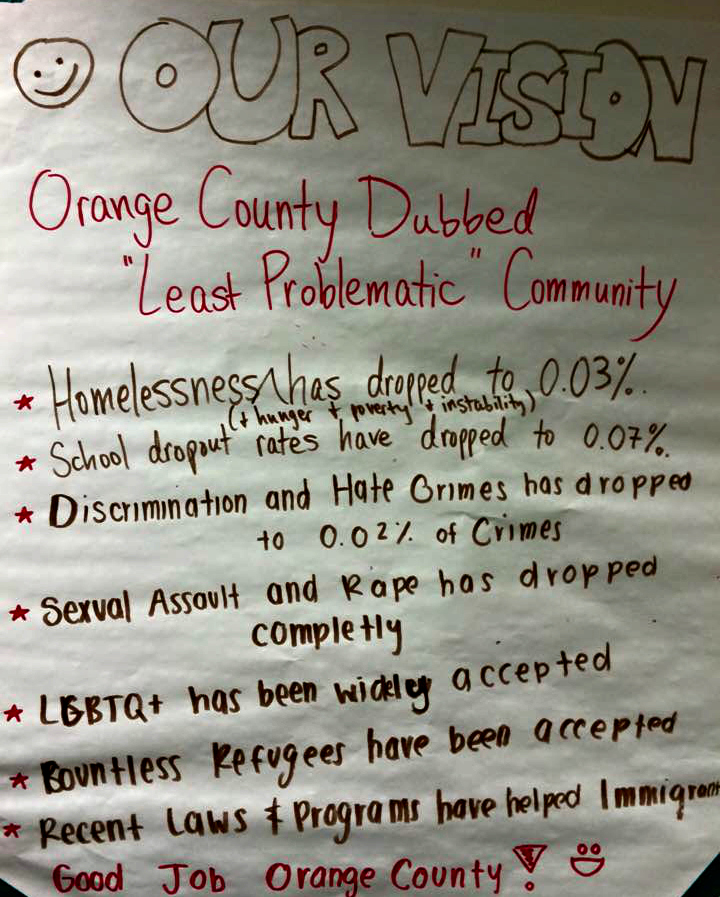 OUR VISION
Orange County Dubbed
"Least Problematic" Community
* Homelessness has dropped to 0.03%.
(+ hunger + poverty + instability)
* School dropout rates have dropped to 0.07%.
* Discrimination and Hate Crimes has dropped
to 0.02% of Crimes
* Sexual Assault and Rape has dropped
completly
* LGBTQ+ has been widely accepted
* Bountless Refugees have been accepted
* Recent Laws & Programs have helped Immigrant
Good Job Orange County!